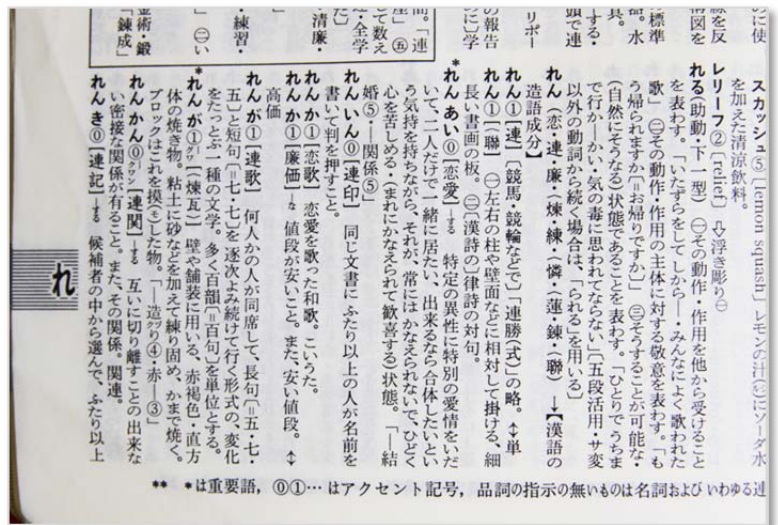 スカッシュ⑤〔lemon squash〕レモンの汁にソーダ水
を加えた清涼飲料。
レリーフ②〔relief〕⇩浮き彫り㊀
れる(助動・下一型)㊀その動作・作用を他から受けること
を表わす。「いたずらをして しから―・みんなによく歌われた
歌」㊁その動作・作用の主体に対する敬意を表わす。「も
う帰られますか〔=お帰りですか〕」㊂そうすることが可能な・
(自然にそうなる)状態であることを表わす。「ひとりでうちま
で行か―かい・気の毒に思われてならない」〔五段活用・サ変
以外の動詞から続く場合は、「られる」を用いる〕
れん(恋・連・廉・煉・練・(憐・蓮・錬・(聯)→【漢語の
造語成分】
れん①【連】〔競馬・競輪などで〕「連勝(式)」の略。↔単
れん①【(聯)】㊀左右の柱や壁面などに相対して掛ける、細
長い書画の板。㊁〔漢詩の〕律詩の対句。
*れんあい⓪【恋愛】―する 特定の異性に特別の愛情をいだ
いて、二人だけで一緒に居たい、出来るなら合体したいとい
う気持を持ちながら、それが、常には かなえられないで、ひどく
心を苦しめる・(まれにかなえられて歓喜する)状態。「―結
婚⑤・―関係⑤」
れんいん⓪【連印】同じ文書に ふたり以上の人が名前を
書いて判を押すこと。
れんか①【恋歌】恋愛を歌った和歌。こいうた。
れんか①【廉価】―な 値段が安いこと。また、安い値段。↔
高価
れんが①【連歌】何人かの人が同席して、長句〔=五・七・
五〕と短句〔=七・七〕を逐次よみ続けて行く形式の、変化
をたっとぶ一種の文学。多く百韻〔=百句〕を単位とする。
*れんが①【(煉瓦)】壁や舗装に用いる、赤褐色・直方
体の焼き物。粘土に砂などを加えて練り固め、かまで焼く。
ブロックはこれを摸(モ)した物。「―造り④・赤―③」
れんかん⓪【連関】―する 互いに切り離すことの出来な
い密接な関係が有ること。また、その関係。関連。
れんき⓪【連記】―する 候補者の中から選んで、ふたり以上
れ
** *は重要語, ⓪①…はアクセント記号, 品詞の指示の無いものは名詞および いわゆる連